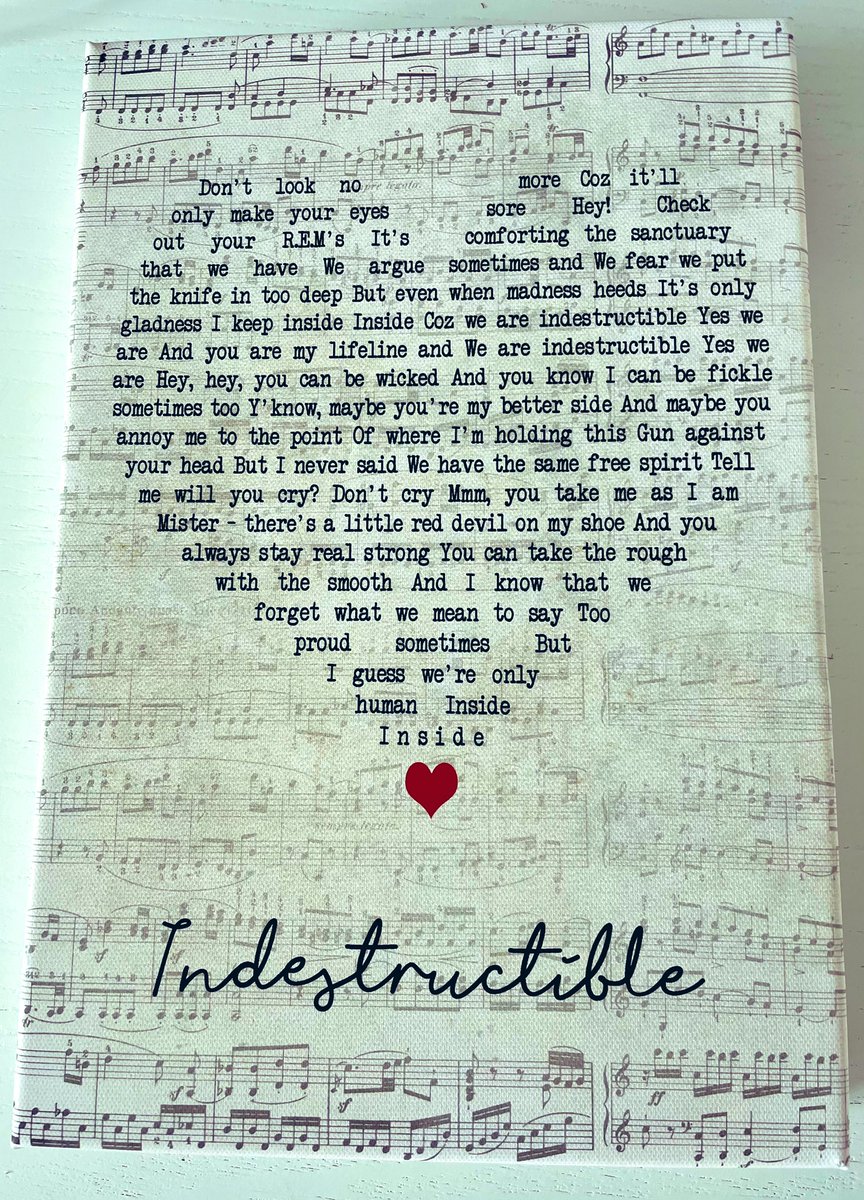 Don't look no more Coz it'll
only make your eyes sore Hey! Check
out your R.E.M's It's comforting the sanctuary
that we have We argue sometimes and We fear we put
the knife in too deep But even when madness heeds It's only
gladness I keep inside Inside Coz we are indestructible Yes we
are And you are my lifeline and We are indestructible Yes we
are Hey, hey, you can be wicked And you know I can be fickle
sometimes too Y'know, maybe you're my better side And maybe you
annoy me to the point Of where I'm holding this Gun against
your head But I never said We have the same free spirit Tell
me will you cry? Don't cry Mmm, you take me as I am
Mister - there's a little red devil on my shoe And you
always stay real strong You can take the rough
with the smooth And I know that we
forget what we mean to say Too
proud sometimes But
I guess we're only
human Inside
Inside
Indestructible